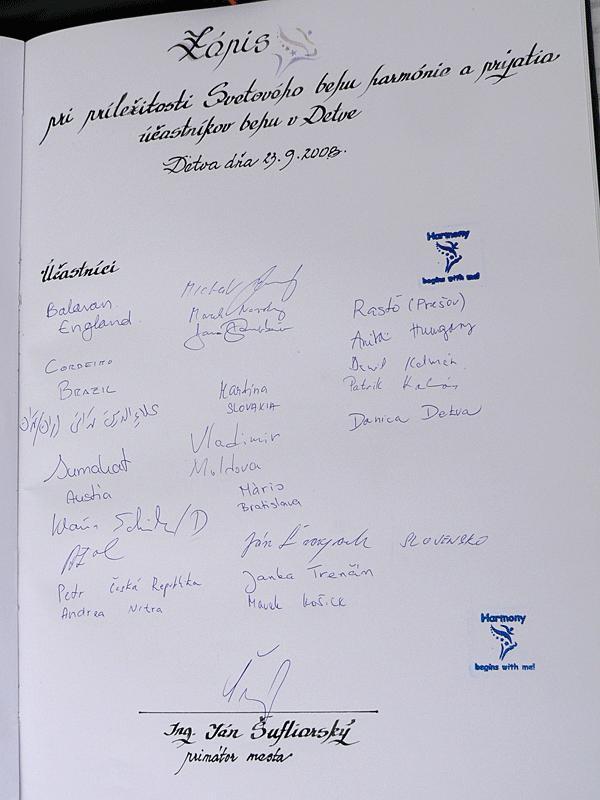 Zápis
pri príležitosti Svetového behu harmónie a prijatia
účastníkov behu v Detve
Detva dňa 23.9.2008.
Harmony
begins with me!
Účastníci
Balavan
England
Michal
Marek
Rastö (Prešov)
Anita Hungary
CORDEIRO
BRAZIL
Martina
SLOVAKIA
David Kolman
Patrik
Danica Detva
Vladimir
Moldova
Sumahat
Austia
Mário
Bratislava
Klaus
Ján
SLOVENSKO
Petr Česká Republika
Andrea Nitra
Janka Trenčín
Marek Košice
Harmony
begins with me!
Ing. Ján Šufliarský
primátor mesta